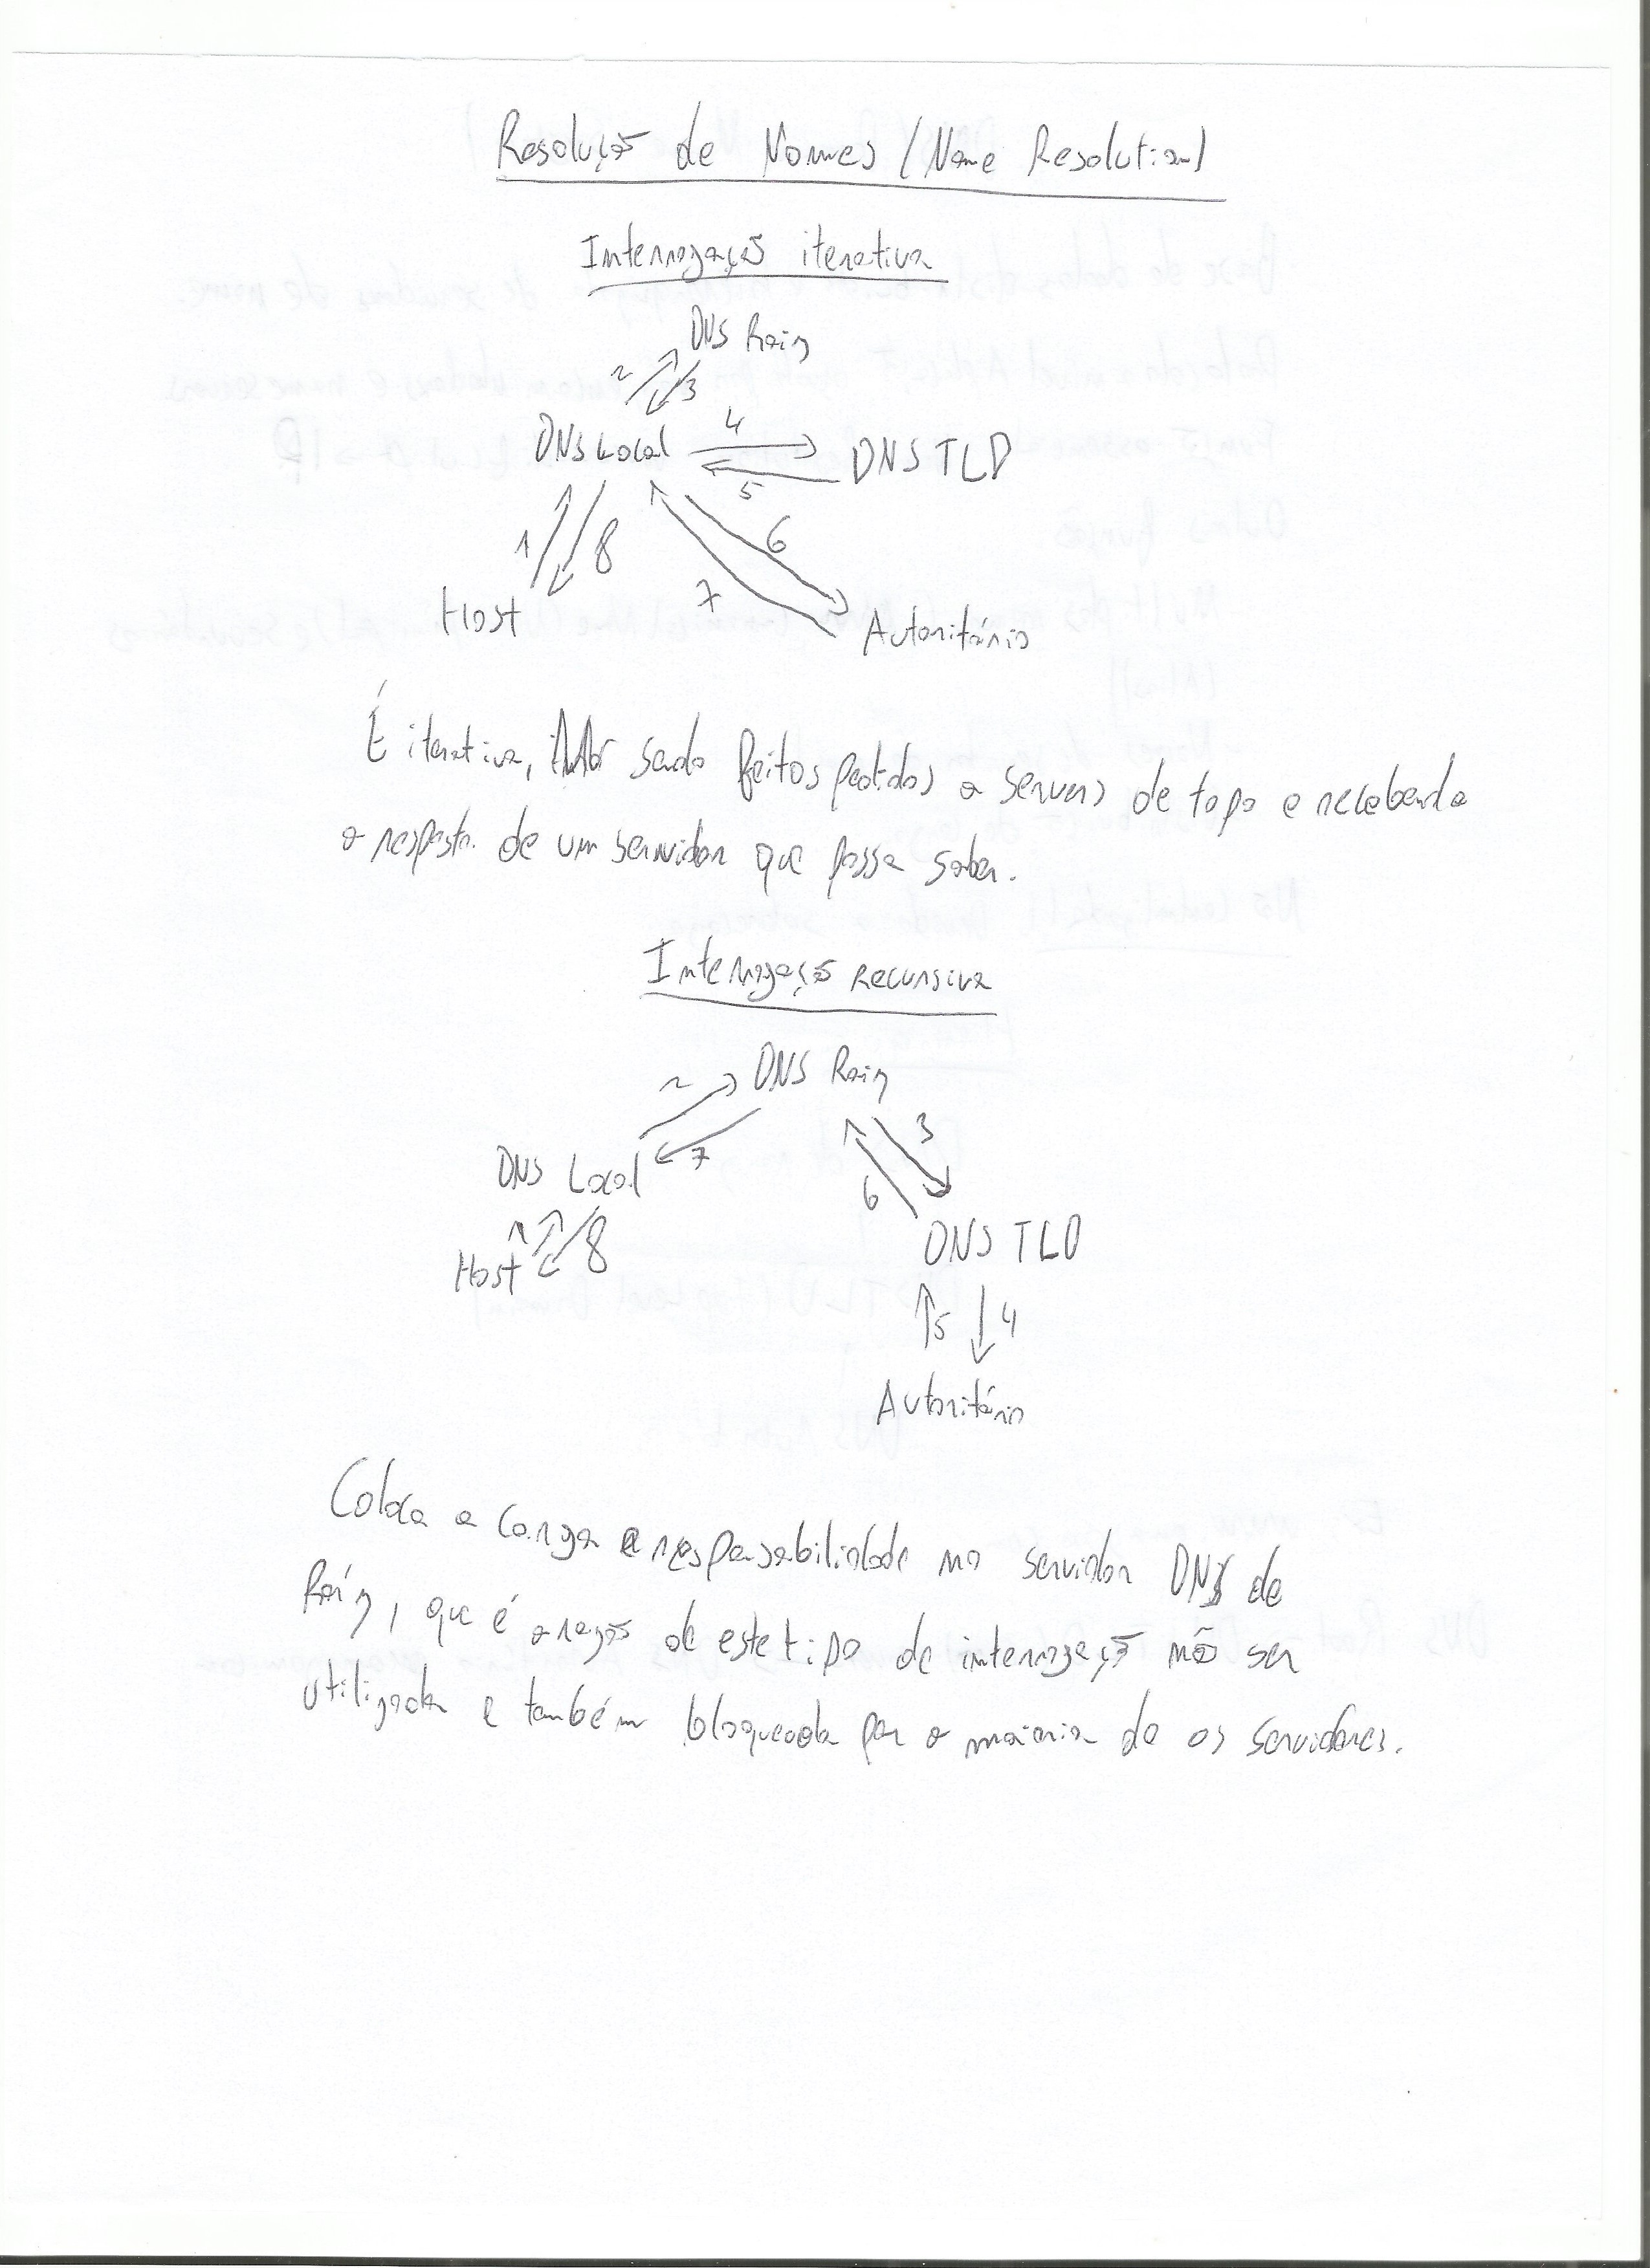 Resolução de Nomes (Name Resolution)
Interrogação iterativa
DNS Raiz
2
3
DNS Local
4
DNS TLD
5
1
8
6
7
Host
Autoritário
É iterativa, sendo feitos pedidos a servers de topo e recebendo
a resposta de um servidor que possa saber.
Interrogação recursiva
2
DNS Raiz
7
3
DNS Local
6
1
8
Host
DNS TLD
5
4
Autoritário
Coloca a carga e responsabilidade no servidor DNS de
Raíz, que é a razão de este tipo de interrogação não ser
utilizada e também bloqueada por a maioria de os servidores.